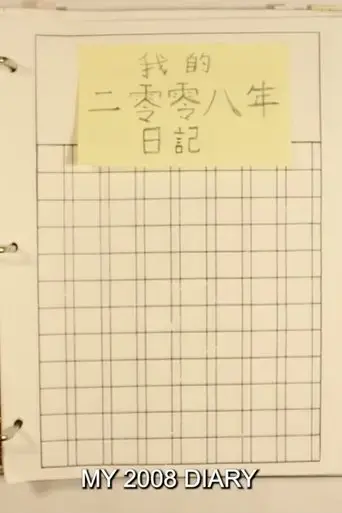 我的
二零零八年
日記
MY 2008 DIARY